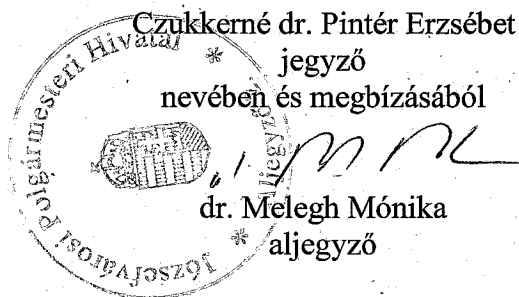 Czukkerné dr. Pintér Erzsébet
jegyző
nevében és megbízásából
dr. Melegh Mónika
aljegyző
Józsefvárosi Polgármesteri Hivatal * Aljegyzője *